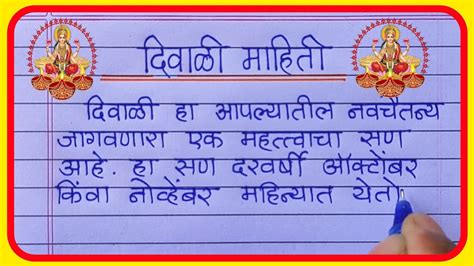 दिवाळी माहिती
दिवाळी हा आपल्यातील नवचैतन्य
जागवणारा एक महत्त्वाचा सण
आहे. हा सण दरवर्षी ऑक्टोंबर
किंवा नोव्हेंबर महिन्यात येतो